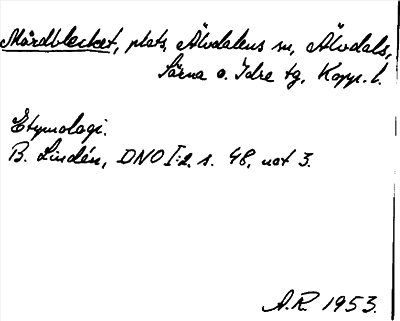 Mårdblecket, plats, Älvdalens sn, Älvdals,
Särna o. Idre tg, Kopp. l.
Etymologi.
B. Lindén, DNO I:2, s. 48, not 3.
A.R. 1953.